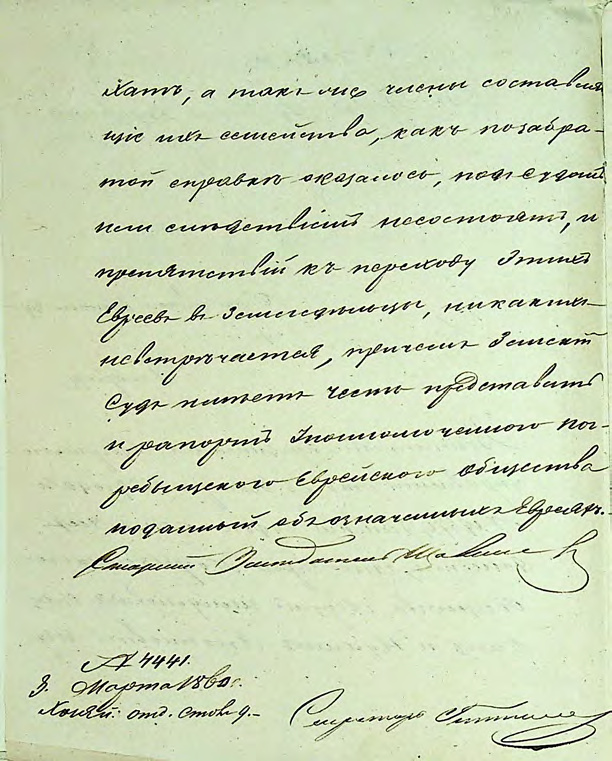 хатъ, а также члены составляю
щіе ихъ семейства, какъ позабра
той справкѣ оказалось, подъ судомъ
или слѣдствіемъ несостоятъ, и
препятствій къ переходу этихъ
Евреевъ въ Земледѣльцы, никакихъ
невстрѣчается, причемъ Земскій
Судъ имѣетъ честь представить
и рапортъ Уполномоченнаго пог-
ребыщскаго Еврейского общества
поданный объ означенныхъ Евреяхъ.
Старшій Засѣдатель
№ 4441.
3. Марта 1860 г.
Хозяй: отд. столъ
Секретарь